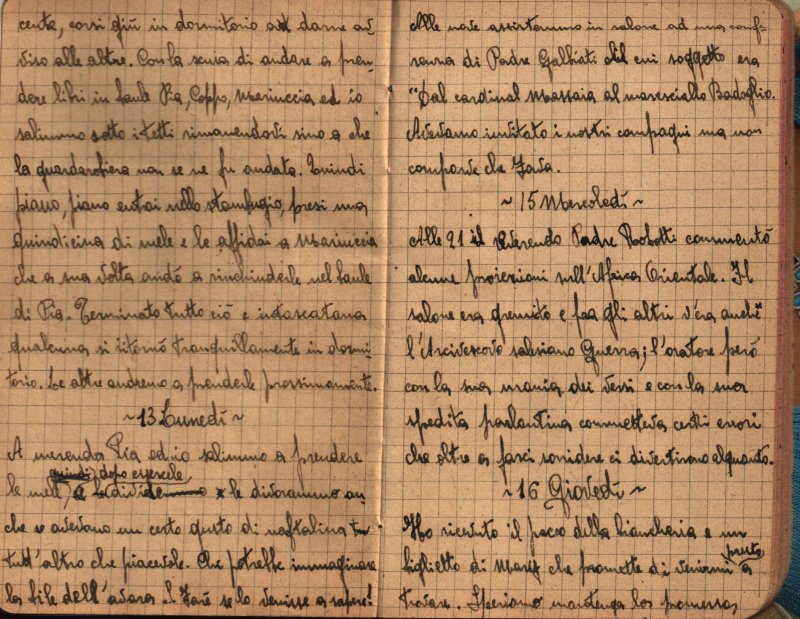 cente, corsi giù in dormitorio a dare av-
viso alle altre. Con la scusa di andare a pren-
dere libri in baule Pia, Coppo, Mariuccia ed io
salimmo sotto i tetti rimanendovi sino a che
la guardarobiera non se ne fu andata. Quindi
piano, piano entrai nello stambugio, presi una
quindicina di mele e le affidai a Mariuccia
che a sua volta andò a rinchiuderle nel baule
di Pia. Terminato tutto ciò e intascatane
qualcuna si ritornò tranquillamente in dormi-
torio. Le altre andremo a prenderle prossimamente.
~ 13 Lunedì ~
A merenda Pia ed io salimmo a prendere
quindi dopo
le mele, e le divorammo an
che se avevano un certo gusto di naftalina
tutt'altro che piacevole. Che potrebbe immaginare
la bile dell'avara se lo venisse a sapere!
Alle nove assistemmo in salone ad una conf-
erenza di Padre Galbiati il cui soggetto era
"Dal cardinal Massaia al maresciallo Badoglio.
Avevamo invitato i nostri compagni ma non
comparve che Java.
~ 15 Mercoledì ~
Alle 21 il Reverendo Padre commentò
alcune proiezioni sull'Africa Orientale. Il
salone era gremito e fra gli altri v'era anche
l'Arcivescovo salesiano Guerra; l'oratore però
con la sua mania dei versi e con la sua
spedita parlantina commetteva certi errori
che oltre a farci sorridere ci divertirono alquanto.
~ 16 Giovedì ~
Ho ricevuto il pacco della biancheria e un
biglietto di Mary che promette di venirmi presto a
trovare. Speriamo mantenga la promessa